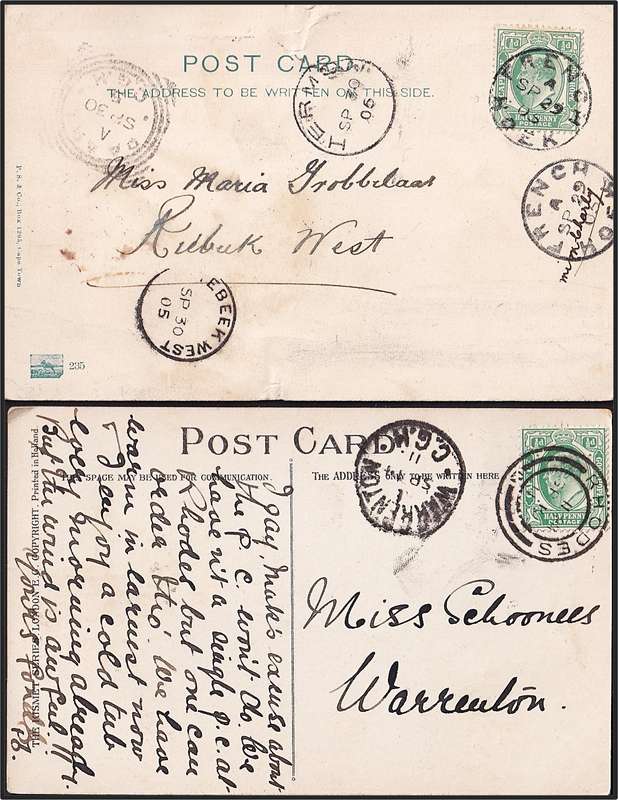 POST CARD
THE ADDRESS TO BE WRITTEN ON THIS SIDE.
SP 30
SP 30
05
TRENCH HOEK
A
SP 29
05
HALFPENNY
POSTAGE
Miss Maria Grobbelaar
Riebeek West
FRENCH HOEK
A
SP 29
05
EBEEK WEST
SP 30
05
P. S. & Co., Box 1293, Cape Town
235
POST CARD
THIS SPACE MAY BE USED FOR COMMUNICATION.
THE ADDRESS ONLY TO BE WRITTEN HERE
WARRENTON
C.G.H.
11
RHODES
HALFPENNY
POSTAGE
I say, Mak's excuse about
the P.C. won't do. We
haven't a single p.c. at
Rhodes but one can
order
We have
warm in earnest now
I enjoy a cold tub
every morning already.
But the wind is awful
Yours fondly
Miss Schoonees
Warrenton.
THE KISMET SERIES, LONDON E.C. COPYRIGHT. Printed in Holland.